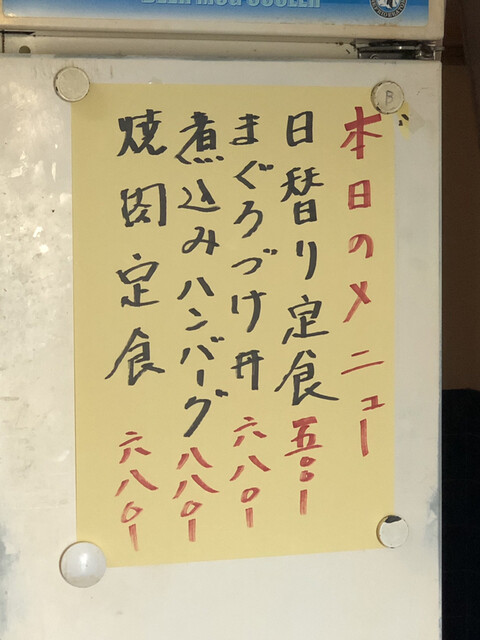 BEER MUG COOLER
本日のメニュー
日替り定食 五〇〇ー
まぐろづけ丼 六八〇ー
煮込みハンバーグ 八八〇ー
焼肉定食 六八〇ー
B